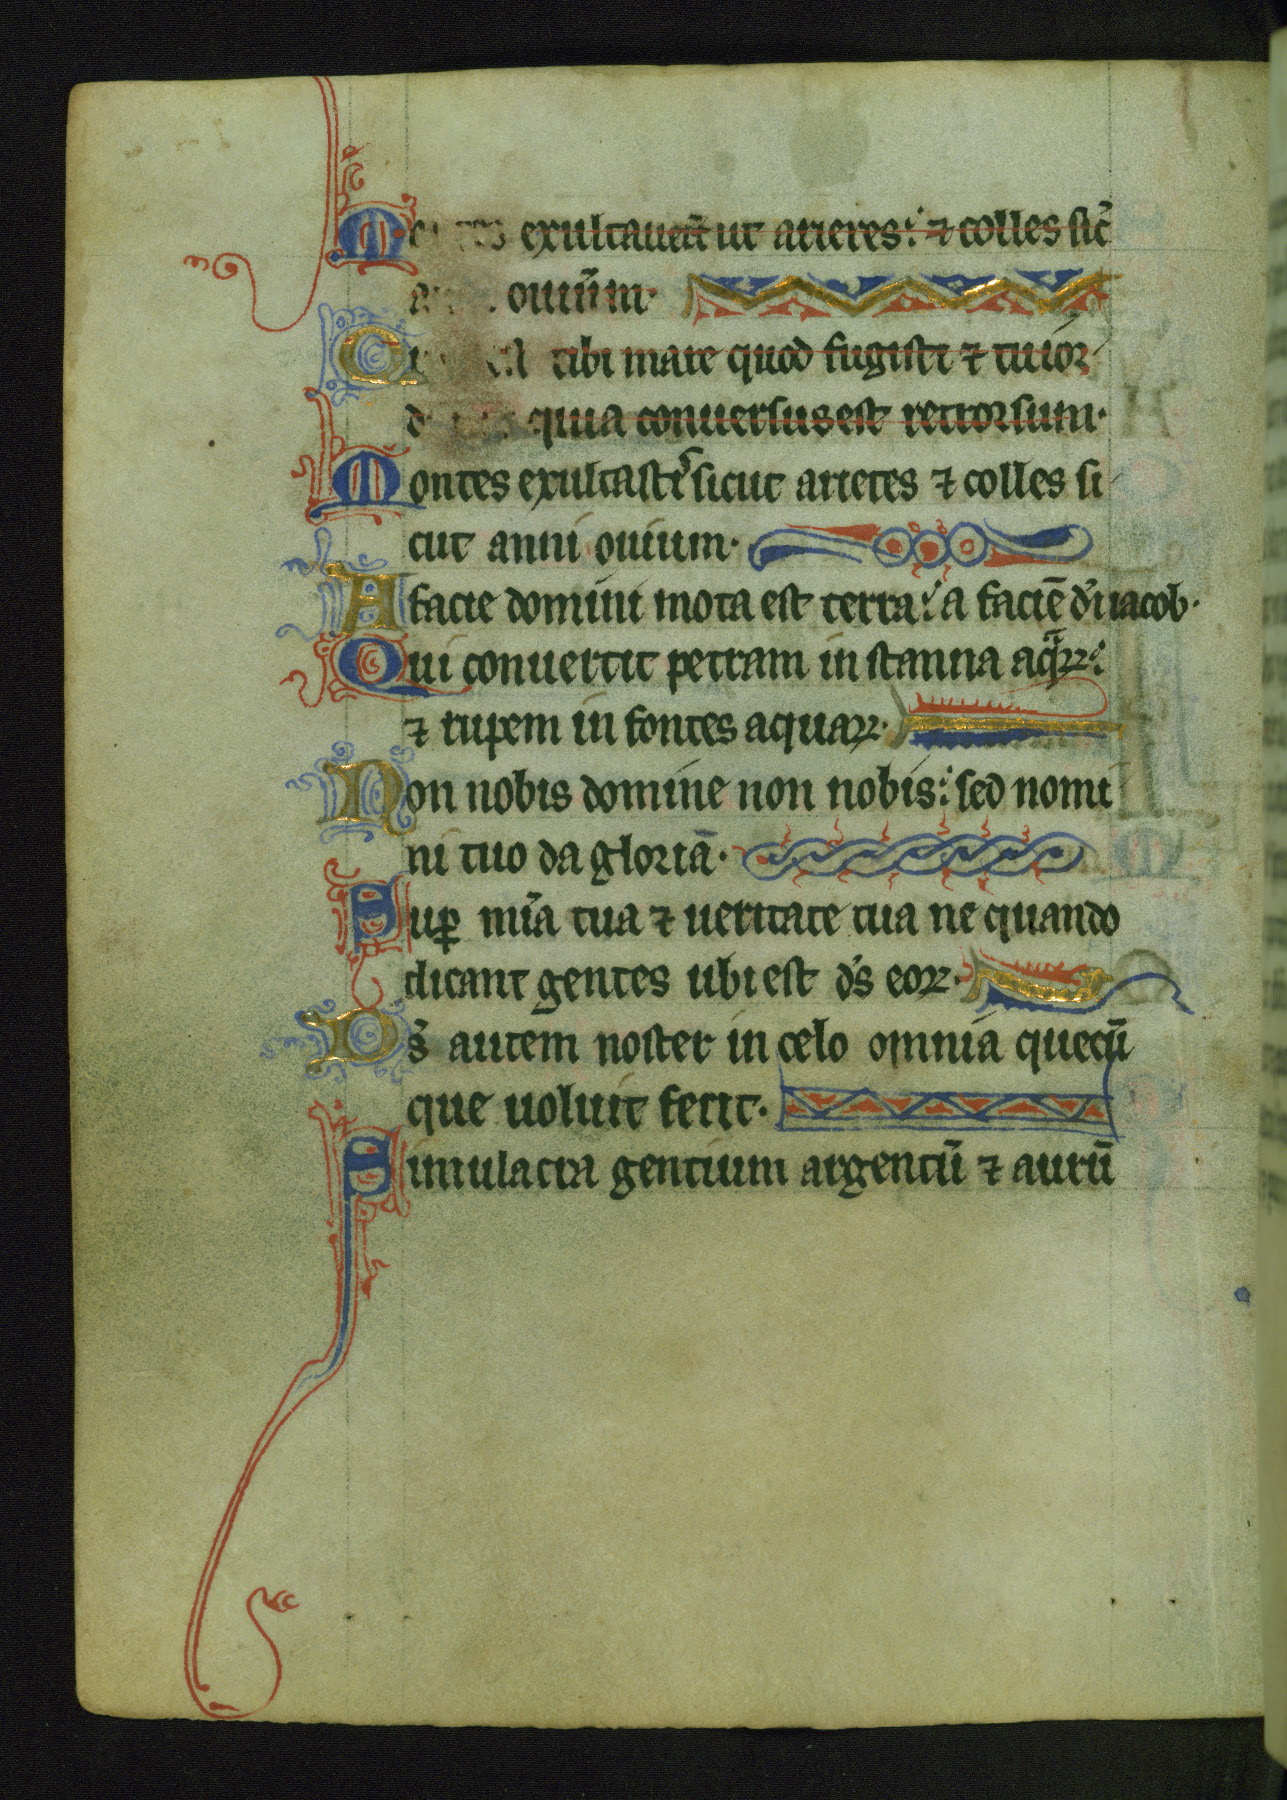 exultauer̄t ut arietes: ⁊ colles sic̄
ouiūm·
tibi mare quod fugisti ⁊ tu ior
quia conuersus est retrorsum·
Montes exultastis sicut arietes ⁊ colles si
cut anni ouium·
A facie domini mota est terra: a faciē dī iacob·
Qui conuertit petram in stanna aqꝝ:
⁊ rupem in fontes aquaꝝ·
Non nobis domine non nobis: sed nomi
ni tuo da gloriā·
Sup̄ mīa tua ⁊ ueritate tua ne quando
dicant gentes ubi est d̄s eoꝝ·
D̄s autem noster in celo omnia quecū
que uoluit fecit·
Simulacra gentium argentū ⁊ aurū